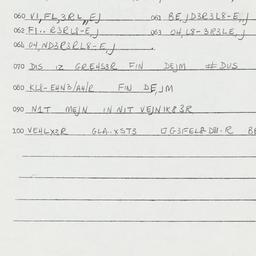 060 V1, FL, 3RL,, EJ 061 BE, JD3R3L8-E, J
062 F1.. R3RL8-E, J 063 04, L8-3R3LE, J
064 04, ND3R3RL8-E, J
070 DIS IZ GREHS3R FIN DEJM # DUS
080 KL8-EHN3/AH/R FIN DE, JM
090 N1T MEJN IN N1T VEJN1K83R
100 VEHLX2R GLA..XST3